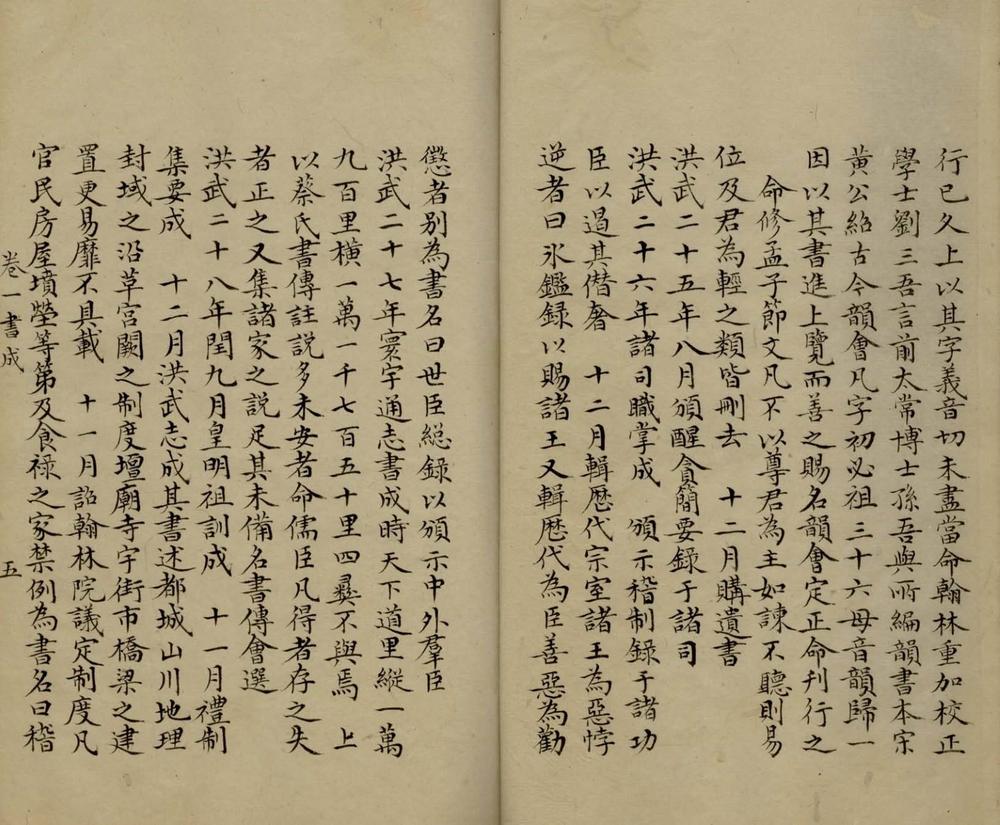 行已久上以其字義音切未盡當命翰林重加校正
學士劉三吾言前太常博士孫吾與所編韻書本宋
黃公紹古今韻會凡字初必祖三十六母音韻歸一
因以其書進上覽而善之賜名韻會定正命刊行之
命修孟子節文凡不以尊君為主如諫不聽則易
位及君為輕之類皆刪去　十二月購遺書
洪武二十五年八月頒醒貪簡要錄于諸司
洪武二十六年諸司職掌成　頒示稽制錄于諸功
臣以過其僭奢　十二月輯歷代宗室諸王為惡悖
逆者曰永鑑錄以賜諸王又輯歷代為臣善惡為勸
懲者別為書名曰世臣緫錄以頒示中外羣臣
洪武二十七年寰宇通志書成時天下道里縱一萬
九百里橫一萬一千七百五十里四彝不與焉　上
以蔡氏書傳註說多未安者命儒臣凡得者存之失
者正之又集諸家之說足其未備名書傳會選
洪武二十八年閏九月皇明祖訓成　十一月禮制
集要成　十二月洪武志成其書述都城山川地理
封域之沿革宮闕之制度壇廟寺宇街市橋梁之建
置更易靡不具載　十一月詔翰林院議定制度凡
官民房屋墳塋等第及食祿之家禁例為書名曰稽
卷一書成　五